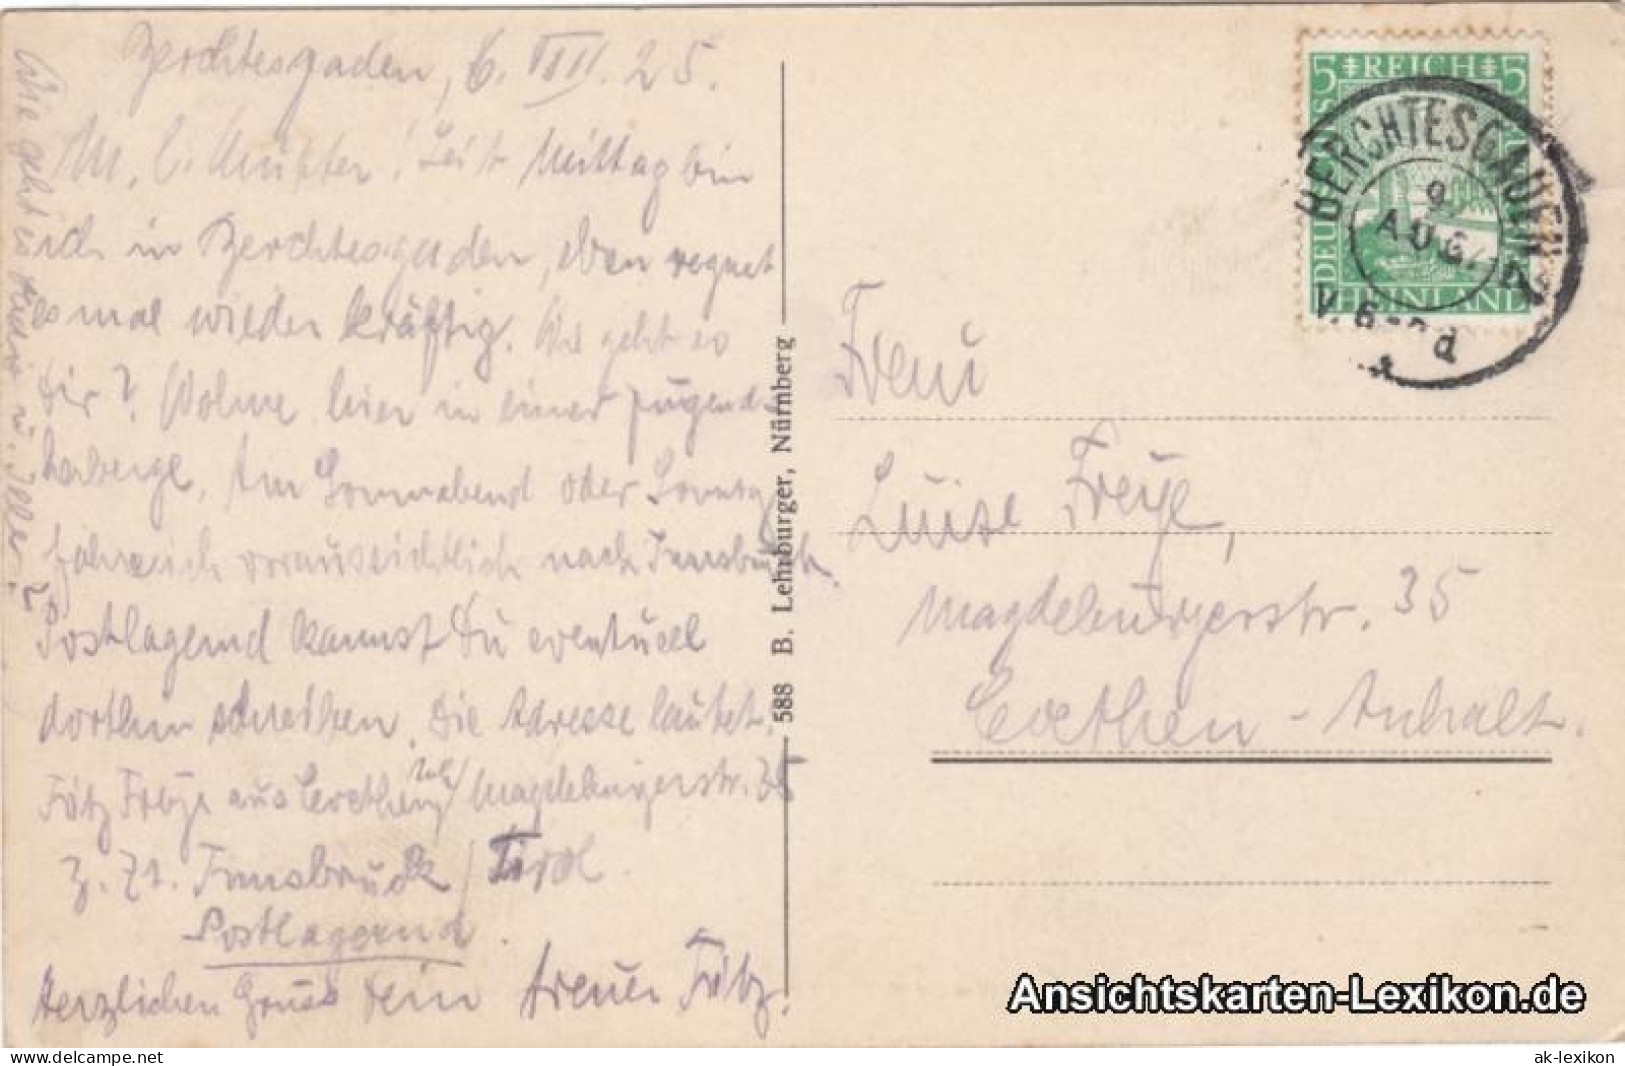 Berchtesgaden, 6. VIII. 25.
M. l. Mutter! Seit Mittag bin
ich in Berchtesgaden, eben regnet
es mal wieder kräftig. Wie geht es
Dir? Wohne hier in einer Jugend-
herberge. Am Sonnabend oder Sonntag
fahre ich voraussichtlich nach Innsbruck.
Postlagernd kannst Du eventuell
dorthin schreiben. Die Adresse lautet.
Fritz Freye aus Coethen / Magdeburgerstr. 35
z. Zt. Innsbruck / Tirol.
Postlagernd.
Herzlichen Gruss Dein treuer Fritz.
Wie geht es u. Iller?
588 B. Lehrburger, Nürnberg
5 REICH 5
DEUTSCHES
RHEINLAND
BERCHTESGADEN
9
AUG.
V. 6
d
Frau
Luise Freye,
Magdeburgerstr. 35
Coethen - Anhalt.
Ansichtskarten-Lexikon.de
www.delcampe.net
ak-lexikon